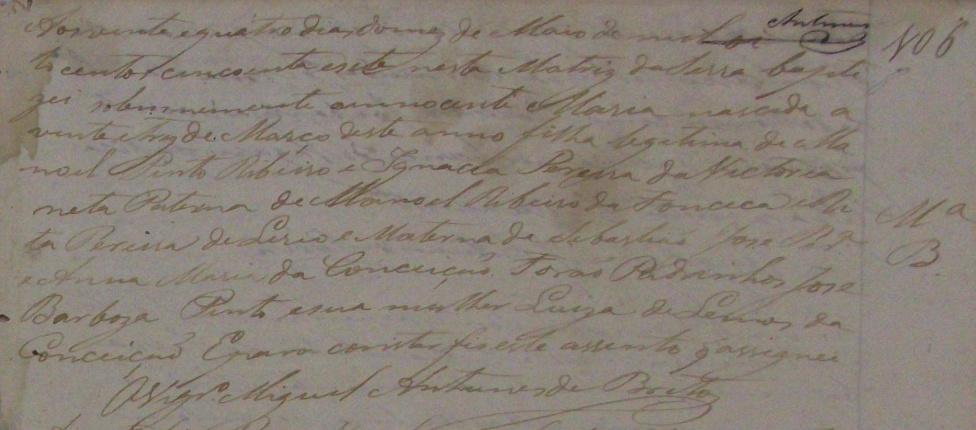 Antunes
Aos vinte e quatro dias do mez de Maio de mil oi
to centos cincoenta e sete nesta Matriz da Serra bapti
zei solemnemente a innocente Maria nascida a
vinte e trez de Março deste anno filha legitima de Ma
noel Pinto Ribeiro e Ignacia Pereira da Victoria
neta Paterna de Manoel Ribeiro da Fonceca e Ri
ta Pereira de e Materna de Sebastiaõ Jose
e Anna Maria da Conceiçaõ. Foraõ Padrinhos Jose
Barboza Pinto e sua mulher Luiza de Lemos da
Conceiçaõ E para constar fiz este assento q assignei
O Vigr.º Miguel Antunes de Brito
106
Mª
B.